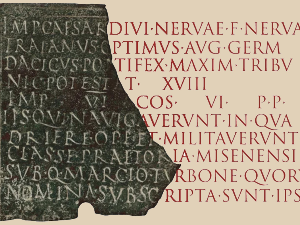 IMP CAESAR DIVI · NERVAE · F · NERVA
TRAIANVS OPTIMVS · AVG · GERM
DACICVS · PONTIFEX · MAXIM · TRIBV
NIC · POTEST T · XVIII
IMP VI COS · VI · P · P ·
IIS QVI NAVIGAVERVNT · IN · QVA
DRIERE OPE ET · MILITAVERVNT
CLASSE PRAETORIA · MISENENSI
SVB · Q · MARCIO TVRBONE · QVOR
NOMINA SVBSCRIPTA · SVNT · IPS